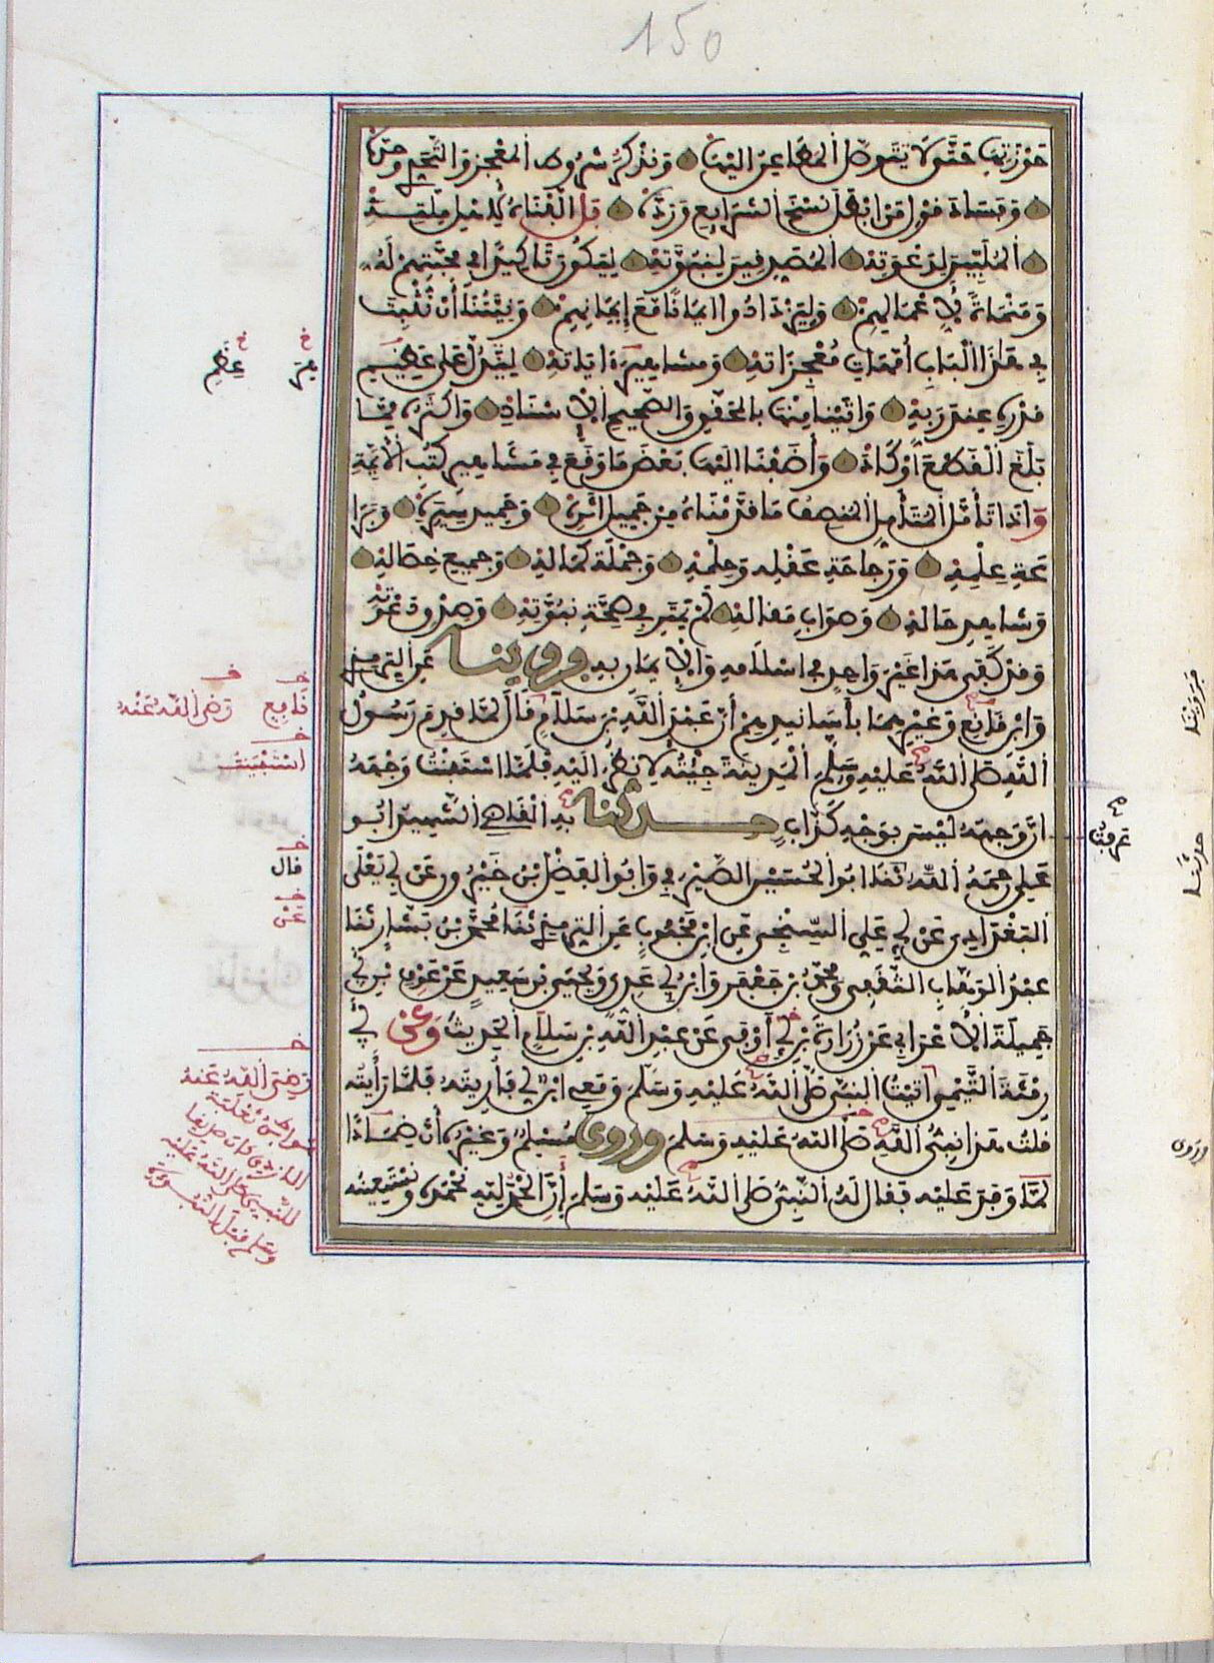 150
حوزتها حتى لا يتوصل المطاعن اليها ونذكر شروط المعجز والتحدي وحده
وفساد قول من أبطل نسخ الشرايع ورده بل ألفناه لاهل ملته
الملبين لدعوته المصدقين لنبوته ليكون تاكيدا في محبتهم له
ومنماة لأعمالهم وليزدادوا ايمانا مع إيمانهم ونيتنا أن نثبت
في هذا الباب أمهات معجزاته ومشاهير اياته لتدل على عظيم
قدره عند ربه واتينا منها بالمحقق والصحيح الإسناد واكثره مما
بلغ القطع أو كاد وأضفنا اليها بعض ما وقع في مشاهير كتب الأئمة
وإذا تأمل المتأمل المنصف ما قدمناه من جميل اثره وحميد سيره وبرا
عة علمه ورجاحة عقله وحلمه وجملة كماله وجميع خصاله
وشاهد حاله وصواب مقاله لم يمتر في صحة نبوته وصدق دعوته
وقد كفى هذا غير واحد في اسلامه والإيمان به وروينا عن الترمذي
وابن قانع وغيرهما بأسانيدهم أن عبد الله بن سلام قال لما قدم رسول
الله صلى الله عليه وسلم المدينة جئته لانظر اليه فلما استبنت وجهه
عرفت
ان وجهه ليس بوجه كذاب حدثنا به القاضي الشهيد ابو
علي رحمه الله ثنا ابو الحسين الصيرفي وابو الفضل بن خيرون عن أبي يعلى
البغدادي عن أبي علي السنجي عن ابن محبوب عن الترمذي ثنا محمد بن بشار ثنا
عبد الوهاب الثقفي ومحمد بن جعفر وابن أبي عدي ويحيى بن سعيد عن عوف بن أبي
جميلة الأعرابي عن زرارة بن أبي أوفى عن عبد الله بن سلام الحديث وعن أبي
رمثة التيمي اتيت النبي صلى الله عليه وسلم ومعي ابن لي فأريته فلما رأيته
قلت هذا نبي الله صلى الله عليه وسلم وروى مسلم وغيره أن ضمادا
لما وفد عليه فقال له النبي صلى الله عليه وسلم إن الحمد لله نحمده ونستعينه
قانع رضي الله عنه
استبينت
قال
عن
رضي الله عنه
حدثنا
وروى